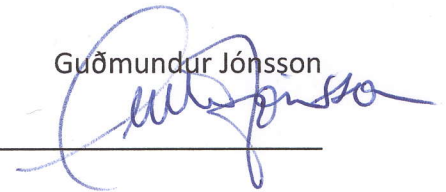 Guðmundur Jónsson